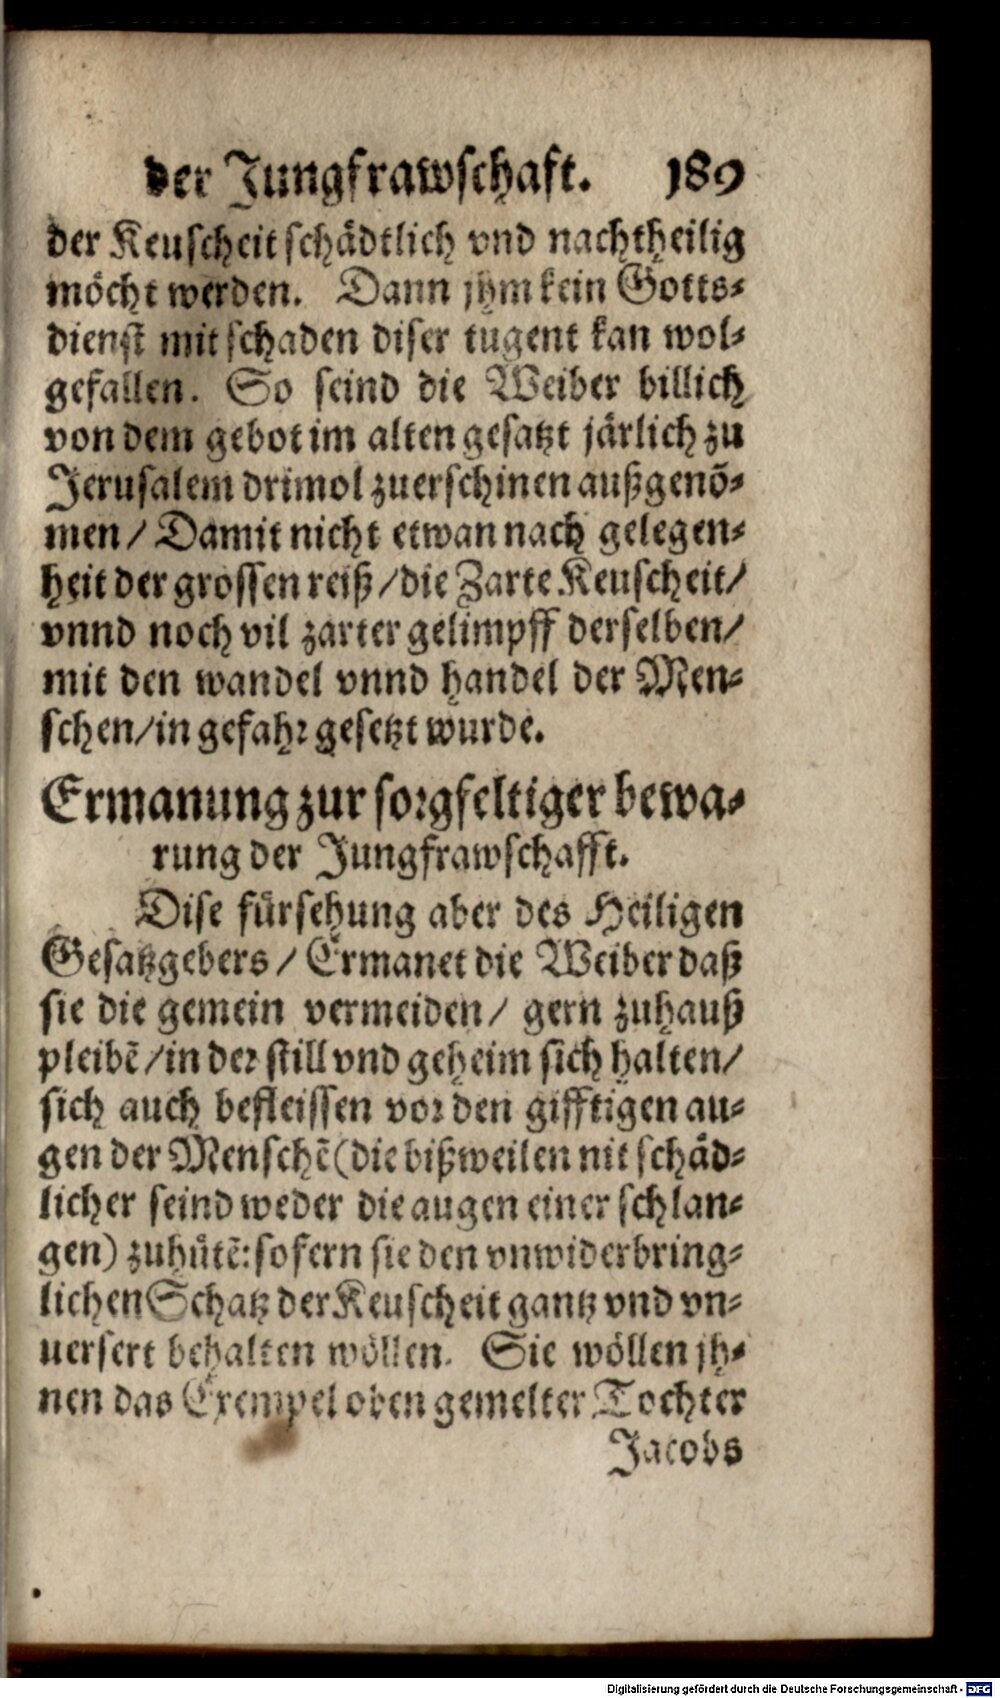 der Jungfrawschaft. 189
der Keuscheit schädtlich vnd nachtheilig
möcht werden. Dann jhm kein Gotts-
dienst mit schaden diser tugent kan wol-
gefallen. So seind die Weiber billich
von dem gebot im alten gesatzt järlich zu
Jerusalem drimol zuerschinen außgenõ-
men / Damit nicht etwan nach gelegen-
heit der grossen reiß / die Zarte Keuscheit /
vnnd noch vil zarter gelimpff derselben /
mit den wandel vnnd handel der Men-
schen / in gefahr gesetzt wurde.
Ermanung zur sorgfeltiger bewa-
rung der Jungfrawschafft.
Dise fürsehung aber des Heiligen
Gesatzgebers / Ermanet die Weiber daß
sie die gemein vermeiden / gern zuhauß
pleibẽ / in der still vnd geheim sich halten /
sich auch befleissen vor den gifftigen au-
gen der Menschẽ (die bißweilen nit schäd-
licher seind weder die augen einer schlan-
gen) zuhütẽ: sofern sie den vnwiderbring-
lichen Schatz der Keuscheit gantz vnd vn-
uersert behalten wöllen. Sie wöllen jh-
nen das Exempel oben gemelter Tochter
Jacobs
Digitalisierung gefördert durch die Deutsche Forschungsgemeinschaft - DFG